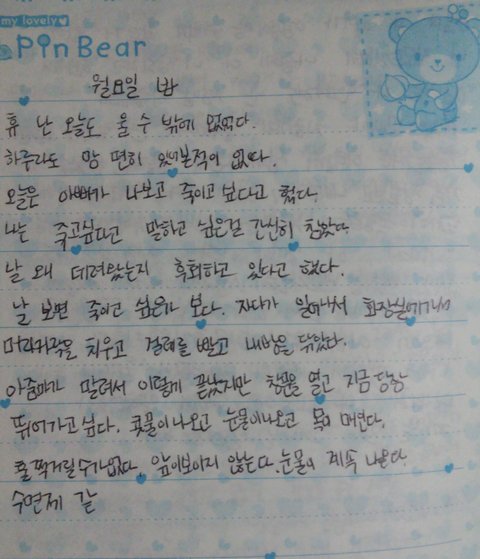 my lovely
Pin Bear
월요일 밤
휴 난 오늘도 울 수 밖에 없었다.
하루라도 맘 편히 있어본적이 없다.
오늘은 아빠가 나보고 죽이고 싶다고 했다.
나는 죽고싶다고 말하고 싶은걸 간신히 참았다
날 왜 데려왔는지 후회하고 있다고 했다.
날 보면 죽이고 싶은가 보다. 자다가 일어나서 화장실에가서
머리카락을 치우고 걸레를 빨고 내방을 닦았다.
아줌마가 말려서 이렇게 끝났지만 창문을 열고 지금 당장
뛰어가고 싶다. 콧물이나오고 눈물이나오고 목이 메인다.
훌쩍거릴수가없다. 앞이보이지 않는다. 눈물이 계속 나온다.
수면제 같